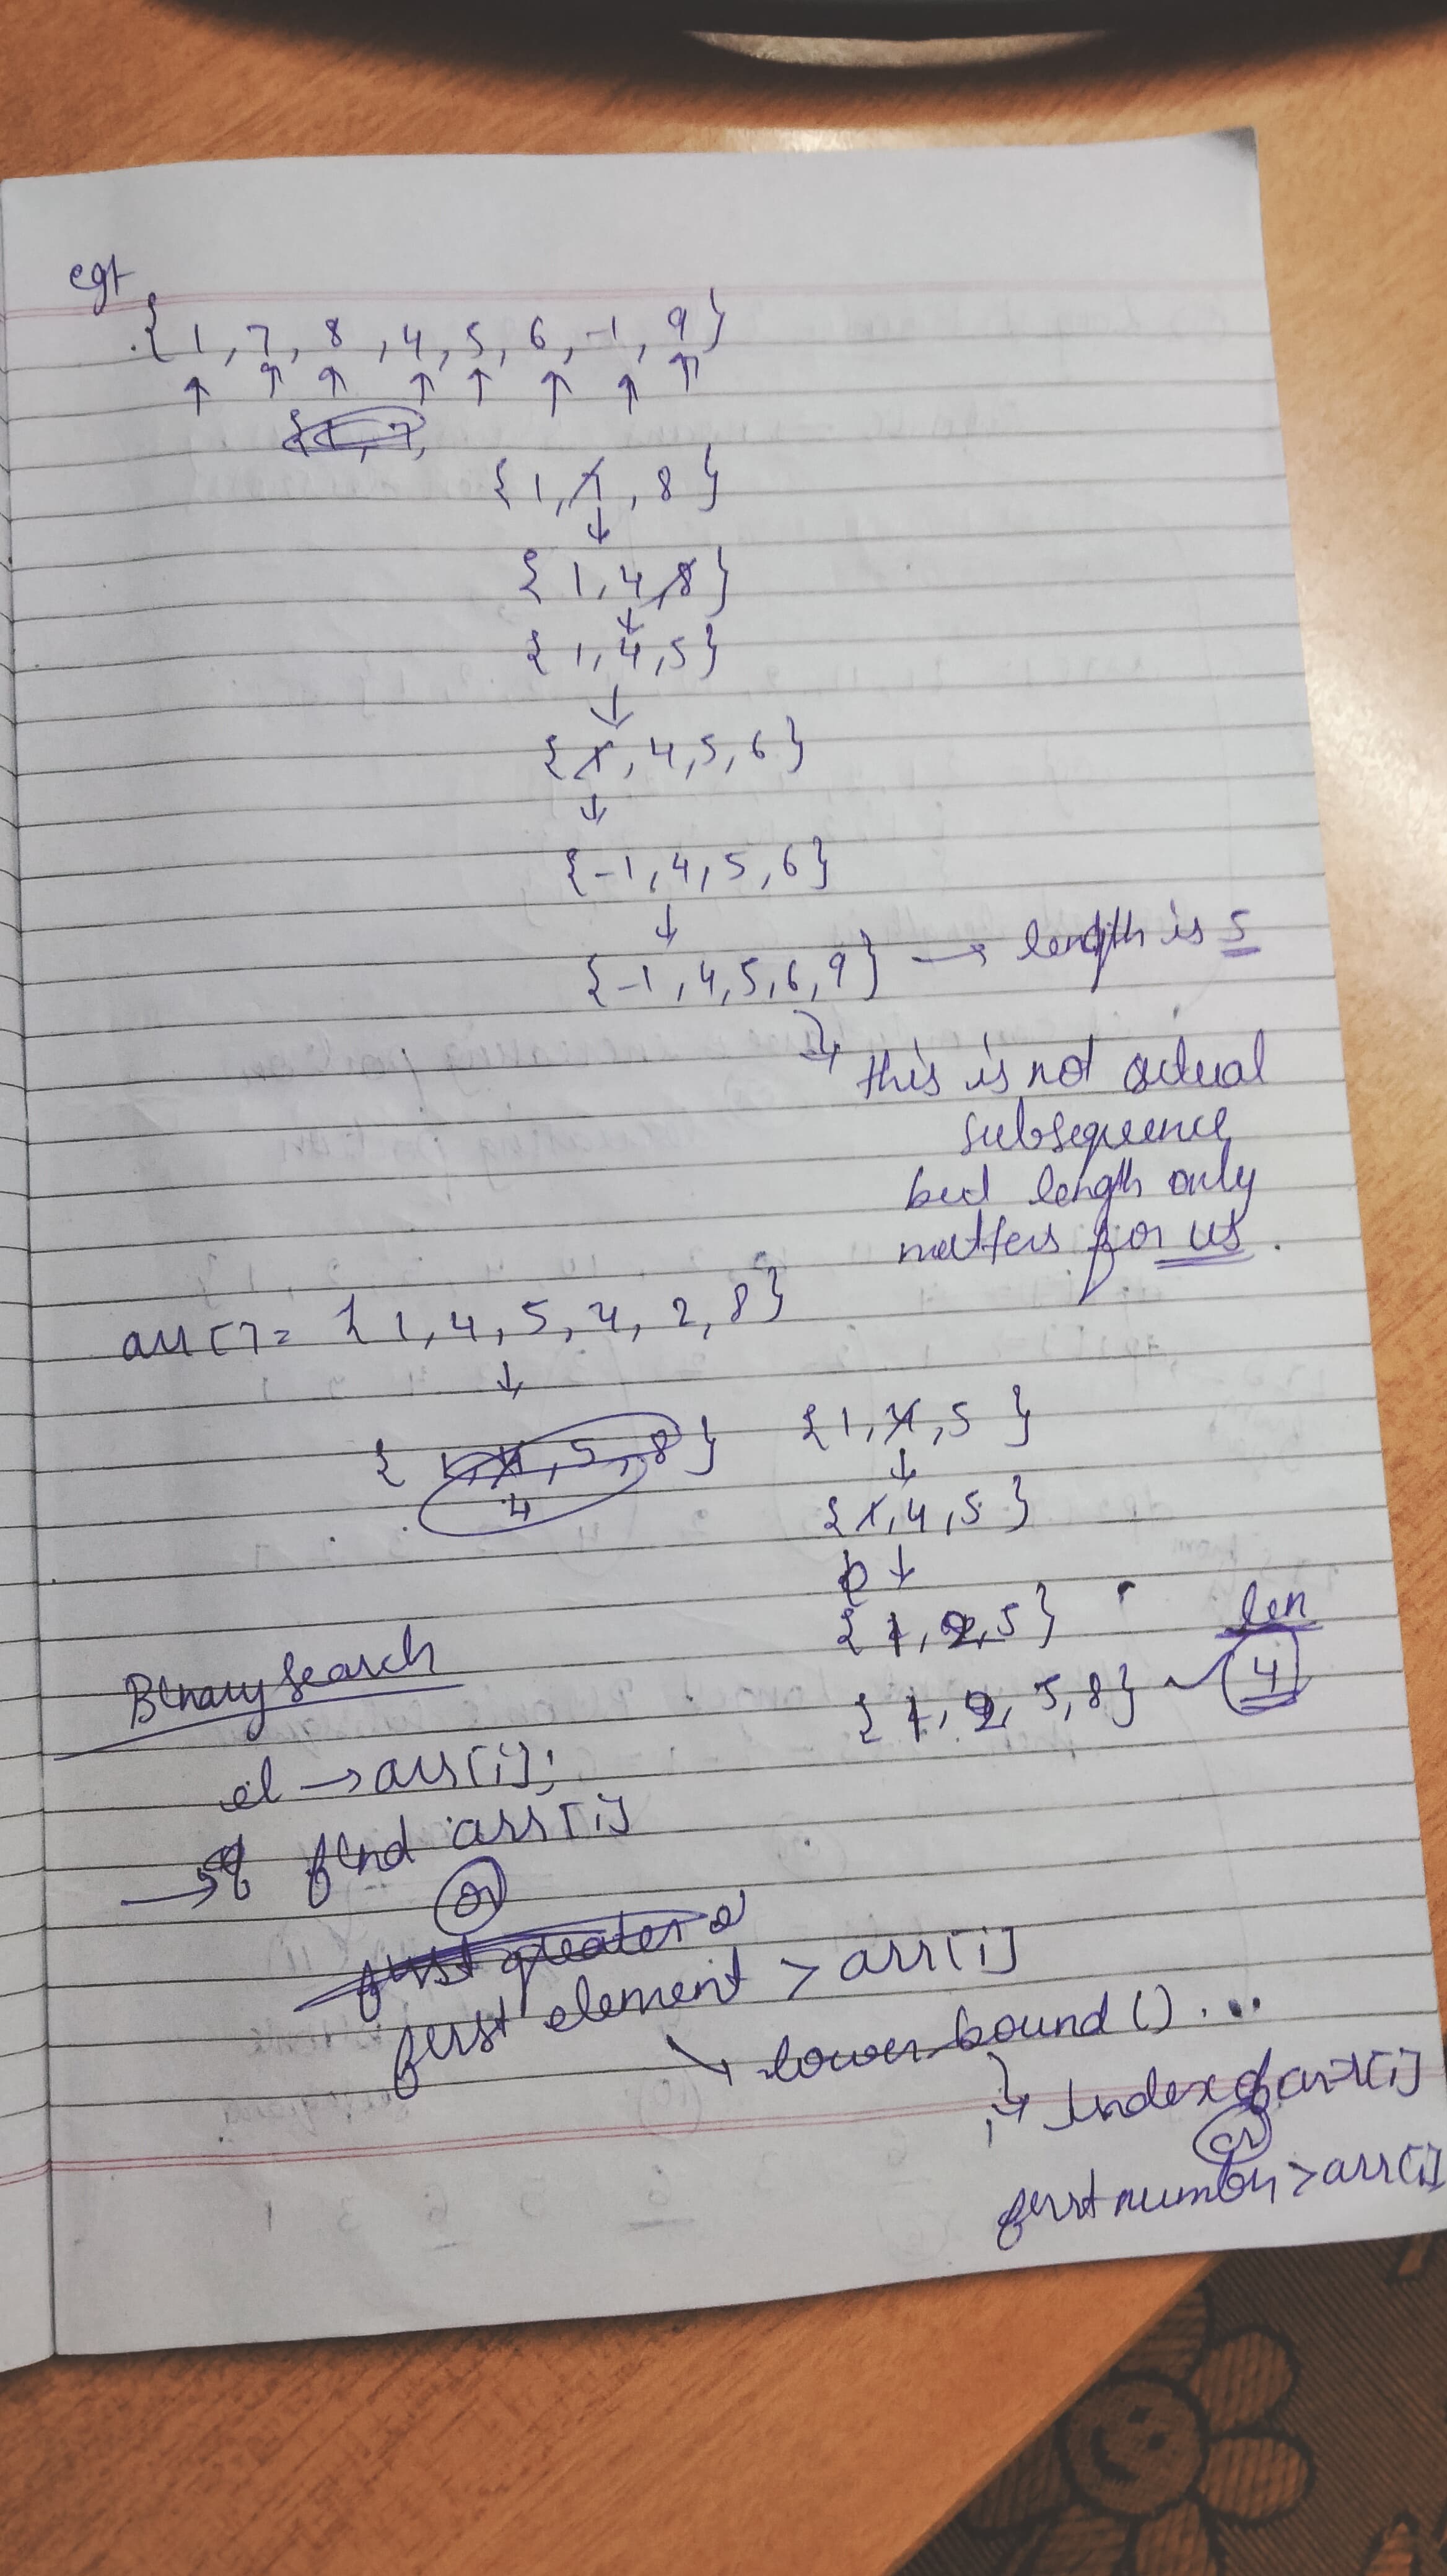 eg:-
{ 1, 7, 8, 4, 5, 6, -1, 9 }
{ 1, 7,
{ 1, 7, 8 }
{ 1, 4, 8 }
{ 1, 4, 5 }
{ 1, 4, 5, 6 }
{ -1, 4, 5, 6 }
{ -1, 4, 5, 6, 9 } → length is 5
this is not actual
subsequence
but length only
matters for us.
arr[] = { 1, 4, 5, 4, 2, 8 }
{ 1, 4, 5, 8 }
4
{ 1, 4, 5 }
{ 1, 4, 5 }
{ 1, 2, 5 }
len
{ 1, 2, 5, 8 } → 4
Binary Search
el → arr[i];
→ find arr[i]
or
first greater e
first element > arr[i]
lower bound () ...
Index of arr[i]
or
first number > arr[i]